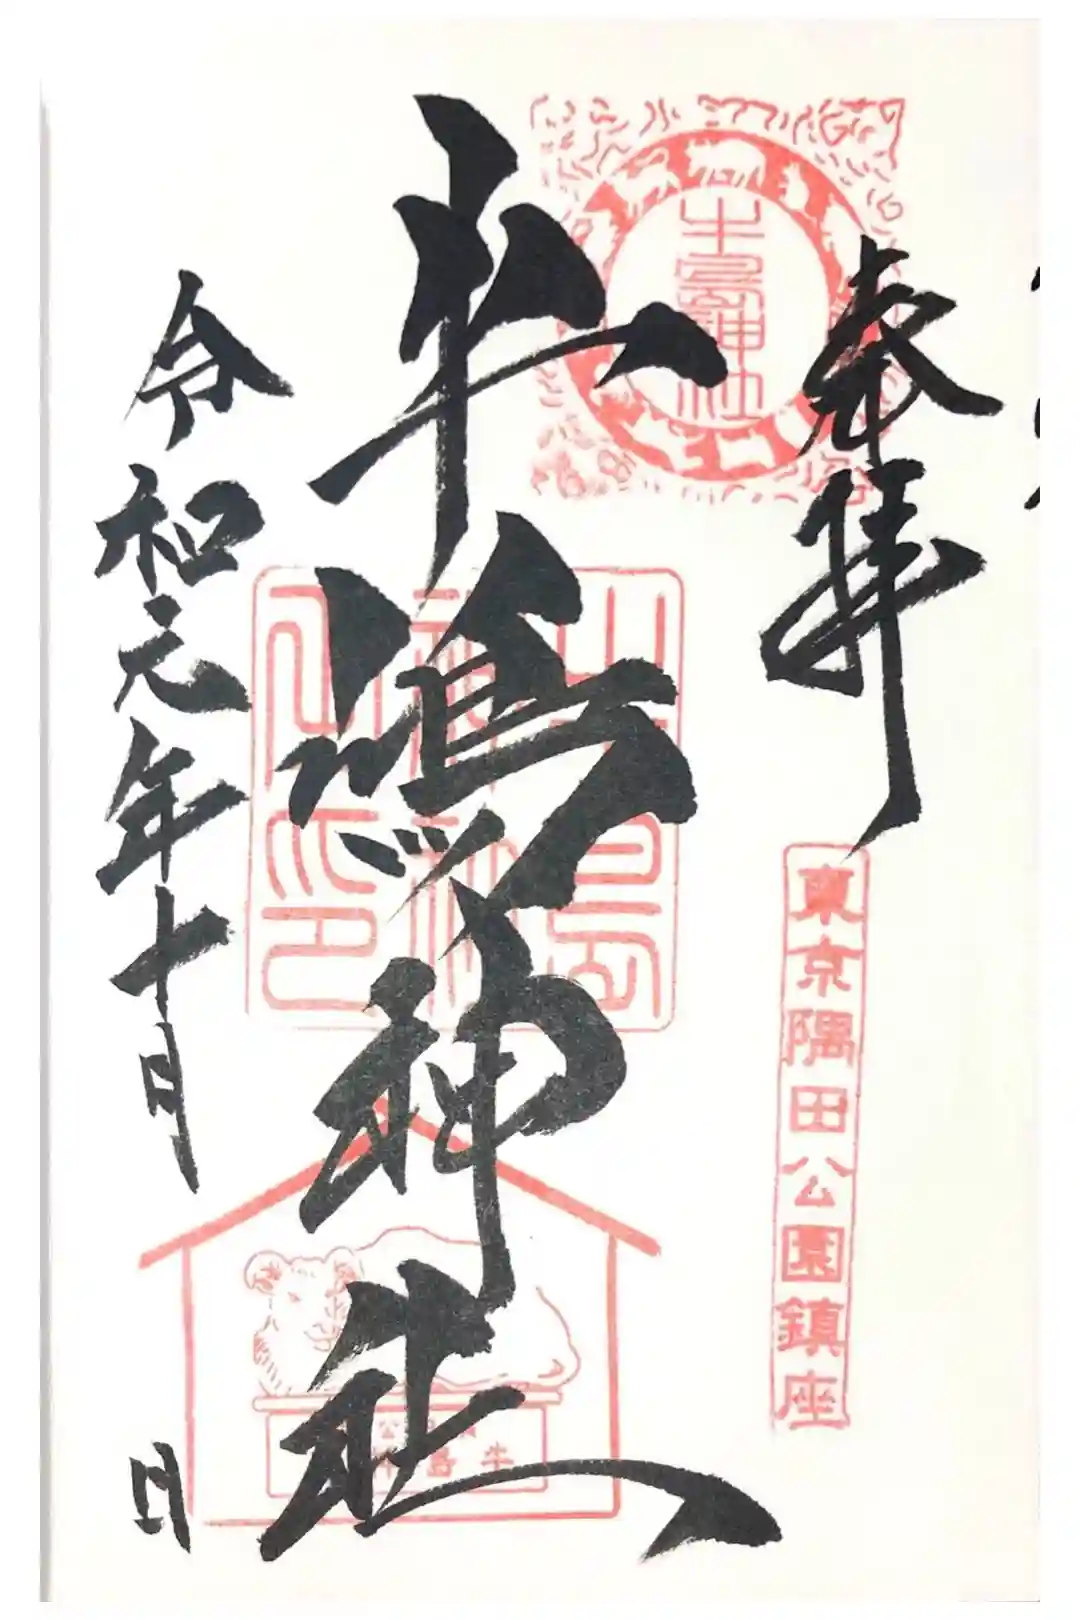 奉拝
東京隅田公園鎮座
牛嶋神社
牛嶋神社
令和元年十月
日